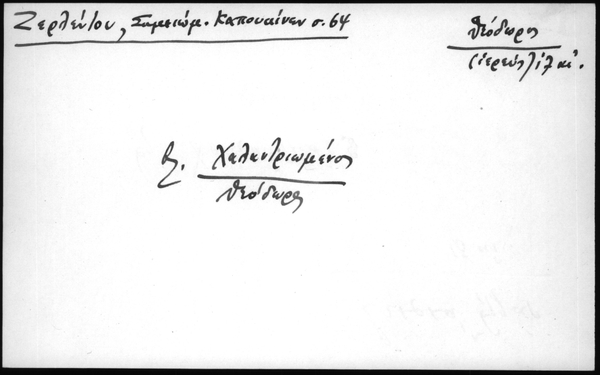 Ζερλέντου, Σημειώμ. Καπουκίνων σ. 64
Θεόδωρος
(ἱερεὺς) ιζ αἰ.
βλ. Χαλαντριωμένος
Θεόδωρος